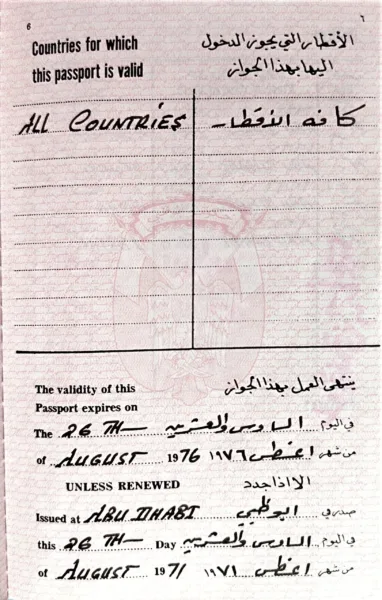 6 ٦
Countries for which الأقطار التي يجوز الدخول
this passport is valid اليها بهذا الجواز
ALL COUNTRIES كافه الأقطار
The validity of this ينتهى العمل بهذا الجواز
Passport expires on
The 26 TH السادس والعشرين في اليوم
of AUGUST 1976 ١٩٧٦ اغسطس من شهر
UNLESS RENEWED الا اذا جدد
Issued at ABU DHABI ابوظبي صدر في
this 26 TH Day السادس والعشرين في اليوم
of AUGUST 1971 ١٩٧١ اغسطس من شهر